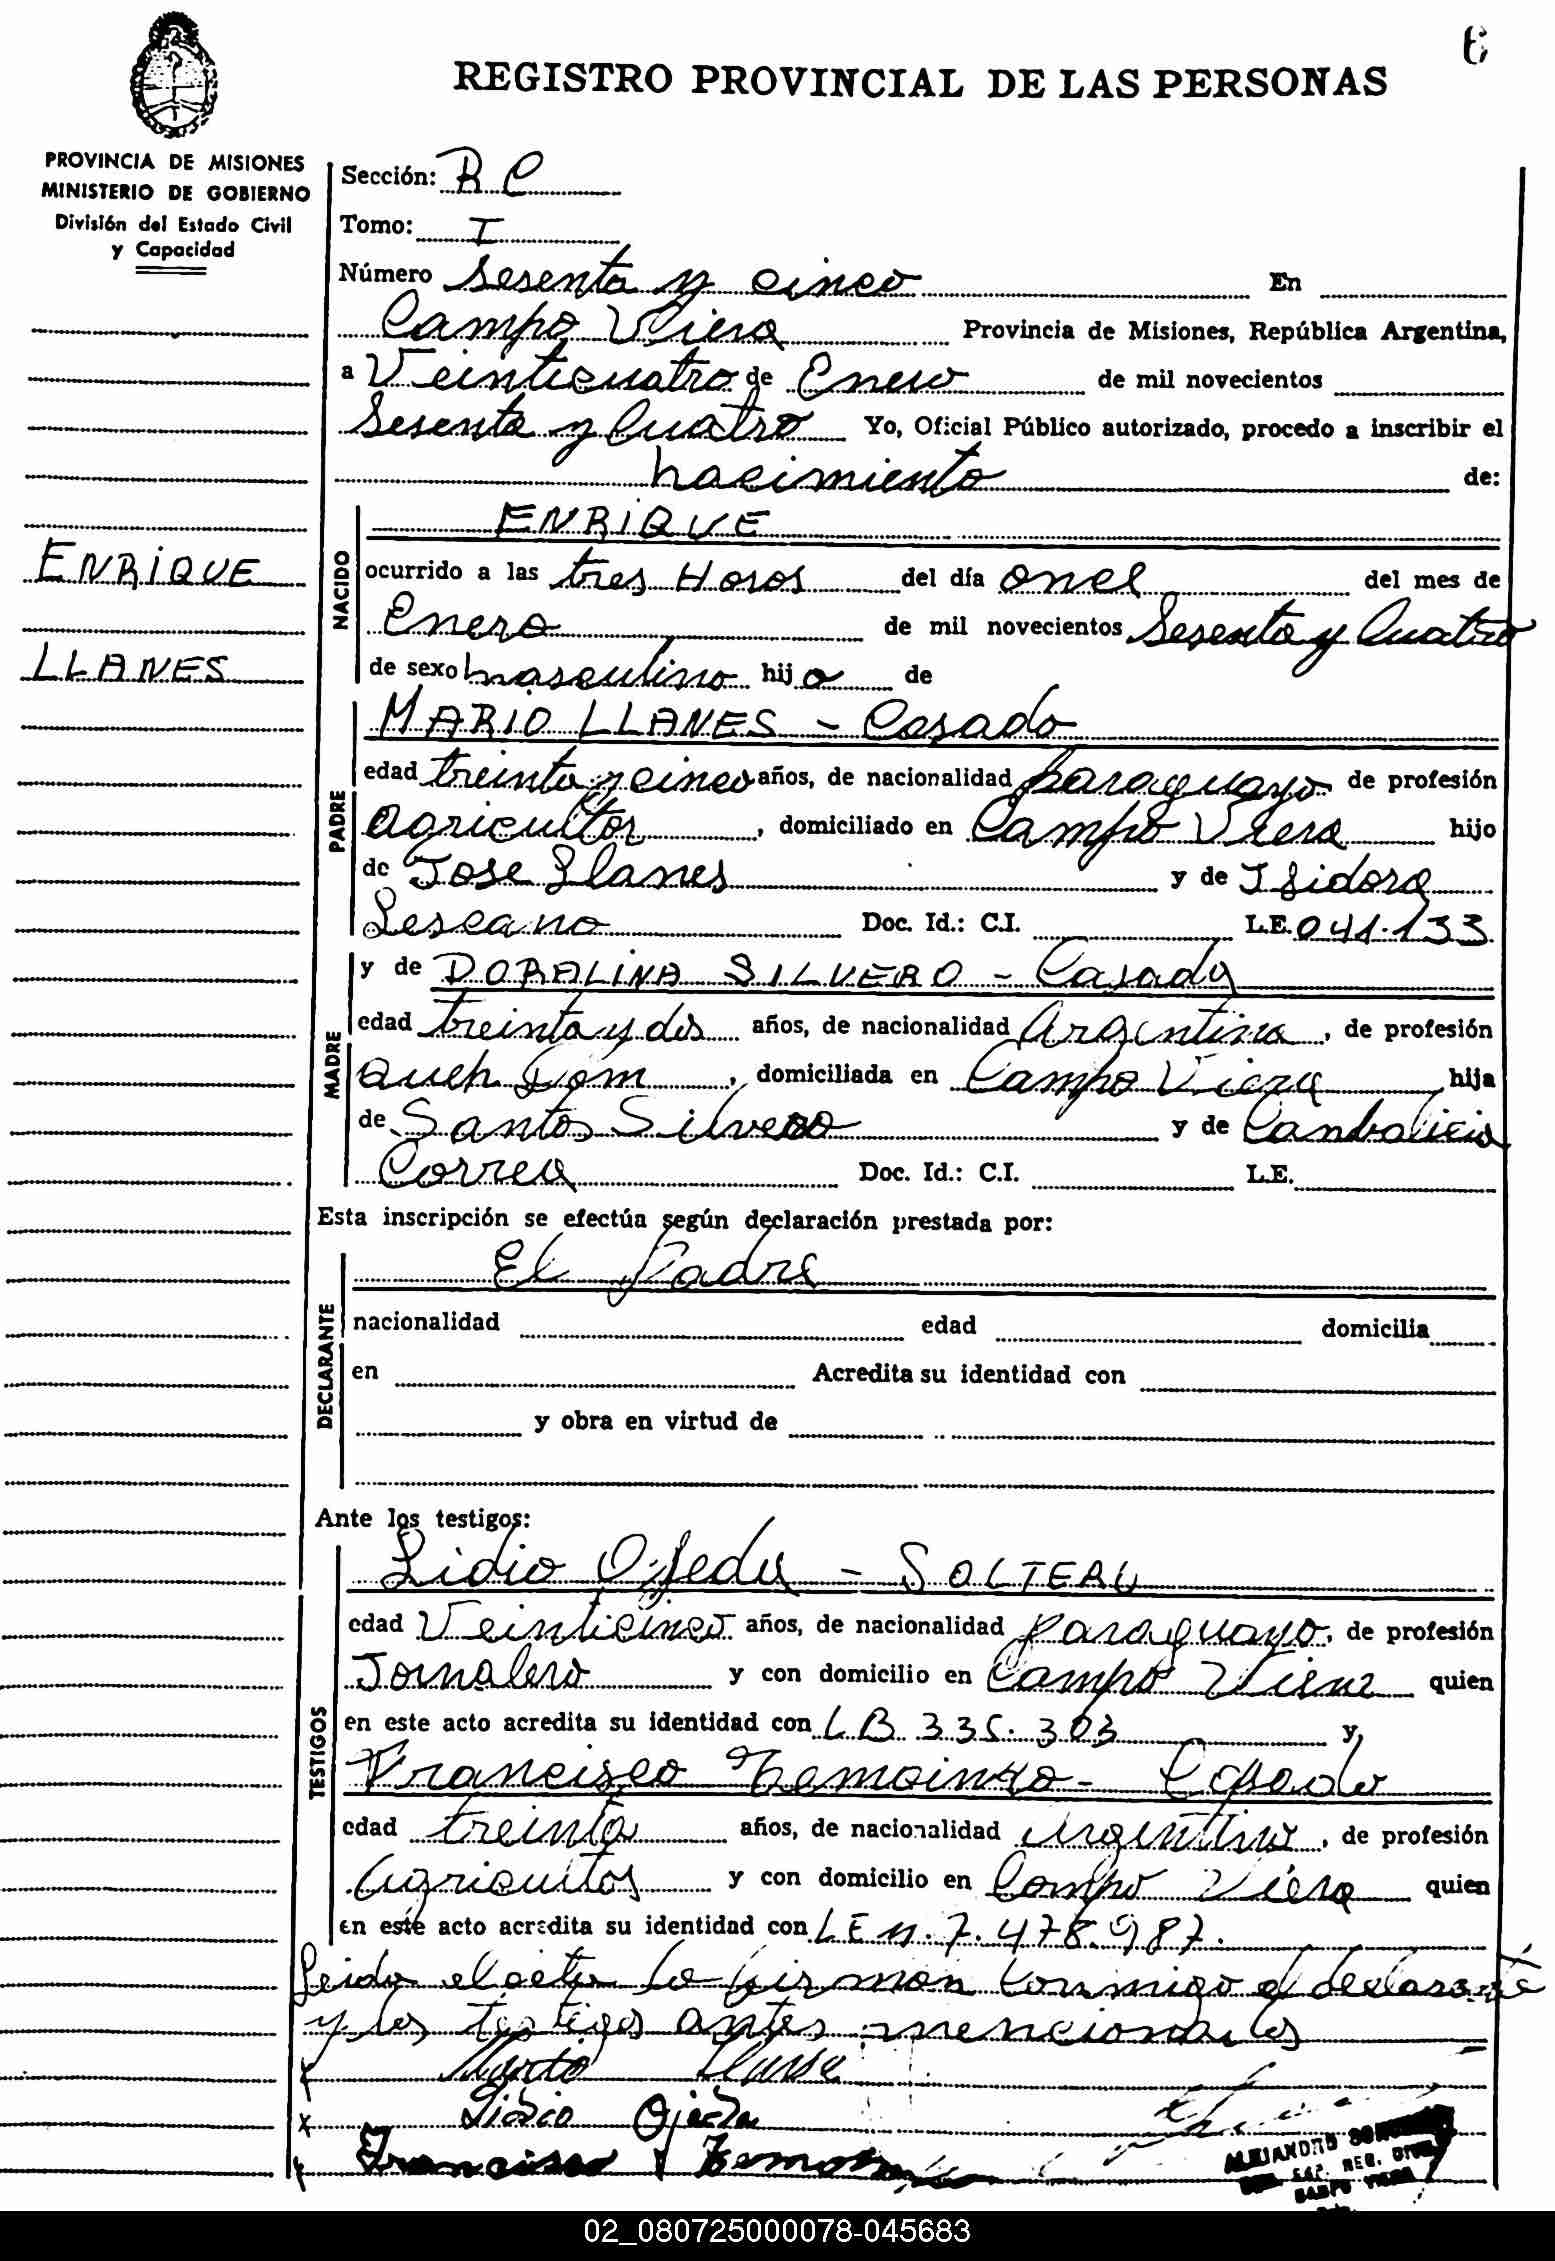 6
REGISTRO PROVINCIAL DE LAS PERSONAS
PROVINCIA DE MISIONES
MINISTERIO DE GOBIERNO
División del Estado Civil
y Capacidad
ENRIQUE
LLANES
Sección: R C
Tomo: I
Número Sesenta y cinco En
Campo Viera Provincia de Misiones, República Argentina,
a Veinticuatro de Enero de mil novecientos
Sesenta y Cuatro Yo, Oficial Público autorizado, procedo a inscribir el
nacimiento de:
NACIDO
ENRIQUE
ocurrido a las tres Horas del día once del mes de
Enero de mil novecientos Sesenta y Cuatro
de sexo masculino hijo de
PADRE
MARIO LLANES - Casado
edad treinta y cinco años, de nacionalidad paraguayo de profesión
agricultor, domiciliado en Campo Viera hijo
de Jose Llanes y de Isidora
Lescano Doc. Id.: C.I. L.E. 041.133
MADRE
y de DORALINA SILVERO - Casada
edad treinta y dos años, de nacionalidad Argentina, de profesión
Queh Dom, domiciliada en Campo Viera hija
de Santos Silvero y de Candalicia
Correa Doc. Id.: C.I. L.E.
Esta inscripción se efectúa según declaración prestada por:
DECLARANTE
El Padre
nacionalidad edad domicilia
en Acredita su identidad con
y obra en virtud de
Ante los testigos:
TESTIGOS
Lidio Ojeda - SOLTERO
edad Veinticinco años, de nacionalidad paraguayo, de profesión
Jornalero y con domicilio en Campo Viera quien
en este acto acredita su identidad con 335.303 y
Francisco - Casado
edad treinta años, de nacionalidad argentino, de profesión
agricultor y con domicilio en Campo Viera quien
en este acto acredita su identidad con LE N. 7.478.987.
Leida el acta la firman conmigo el declarante
y los testigos antes mencionados
Lidio Ojeda
Francisco
ALEJANDRO
CAMPO VIERA
02_080725000078-045683